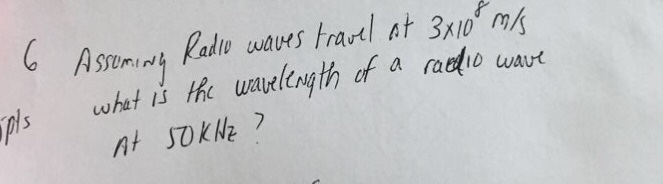 6 Assuming Radio waves travel at 3x10⁸ m/s
what is the wavelength of a radio wave
pts
At 50 KHz?